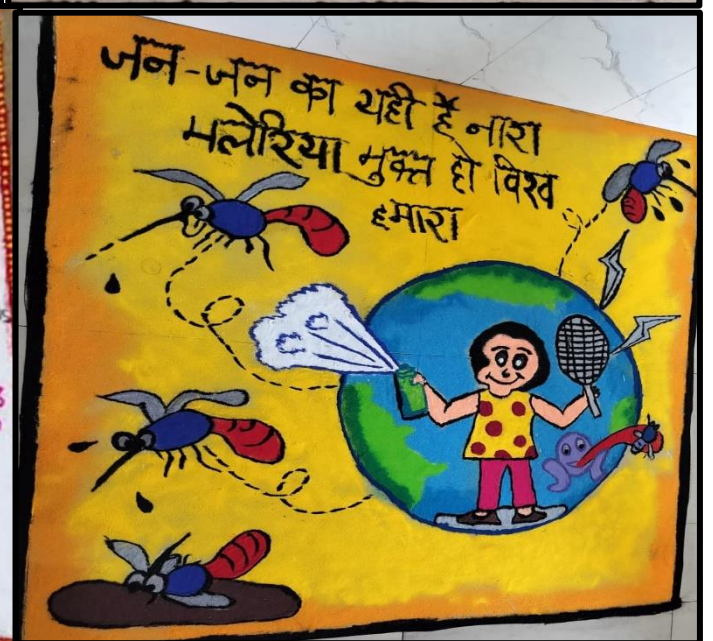 जन-जन का यही है नारा
मलेरिया मुक्त हो विश्व
हमारा